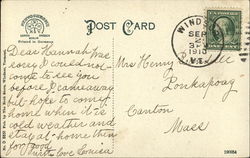 POST CARD
Printed in Germany
WIND
SEP
3
1910
VT.
Dear Hannah was
sorry I could not
come to see you
before I came away
but hope to come
home when it is
cold weather and
stay at home then
for good.
With love Louise
Mrs Henry
Ponkapoag
Canton
Mass